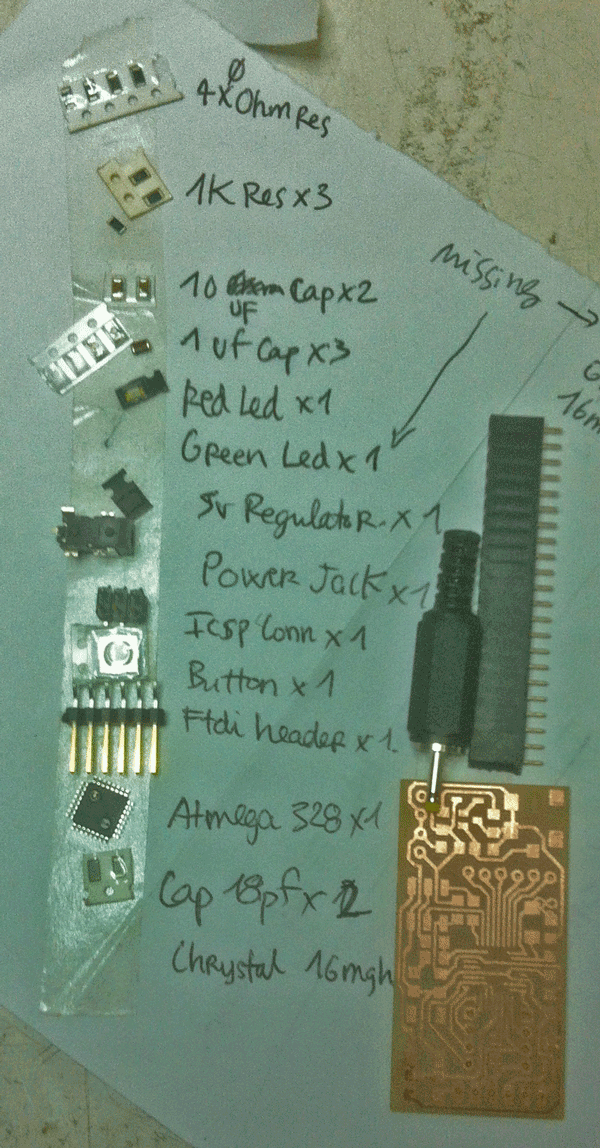 4x0 Ohm Res
1K Res x3
missing
10 uF Cap x2
1 uf Cap x3
Red Led x1
16m
Green Led x1
5v Regulator x1
Power Jack x1
Icsp Conn x1
Button x1
Ftdi header x1
Atmega 328 x1
Cap 18pf x 2
Chrystal 16mgh